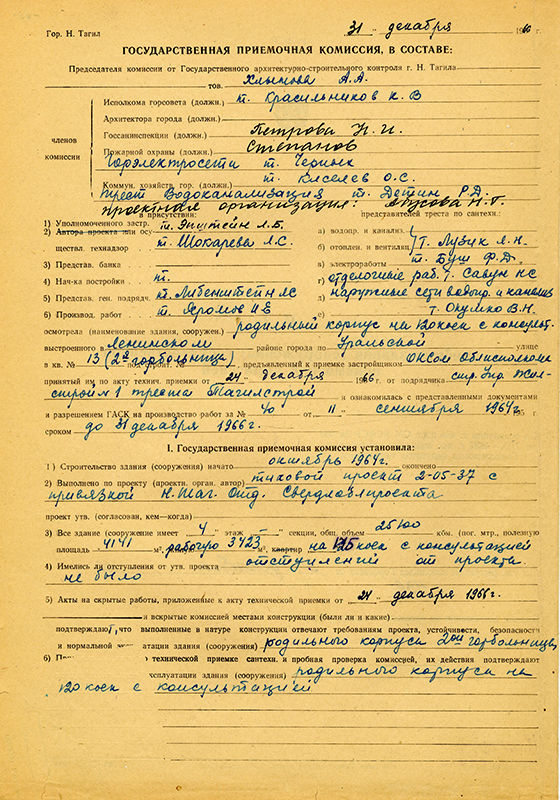 Гор. Н. Тагил 31 " декабря 1966
ГОСУДАРСТВЕННАЯ ПРИЕМОЧНАЯ КОМИССИЯ, В СОСТАВЕ:
Председателя комиссии от Государственного архитектурно-строительного контроля г. Н. Тагила
тов. А.А.
членов комиссии
Исполкома горсовета (должн.) т. Красильников К.В
Архитектора города (должн.)
Госсанинспекции (должн.) Петрова Н.И.
Пожарной охраны (должн.) Степанов
Горэлектросети т.
Коммун. хозяйств гор. (должн.) т. Киселев О.С.
трест Водоканализация т. Р.Д.
проектная организация: Н.Г.
в присутствии: представителей треста по сантехн.:
1) Уполномоченного застр. т. Эпштейн Л.Б.
2) Автора проекта или осу-
ществл. технадзор т. Шокарева Л.С.
3) Представ. банка
4) Нач-ка постройки т.
5) Представ. ген. подряд. т. Либенштейн ЛС
6) Производ. работ т.
а) водопр. и канализ.
б) отоплен. и вентиляц. т. Лузик Л.Н.
в) электроработы т. Буш Ф.Д.
г) отделочные раб. т. Савун КС
д) наружные сети водопр. и канализ
е) т. В.Н.
осмотрела (наименование здания, сооружен.) родильный корпус на 120 коек с консульт.
выстроенного в Ленинском районе города по Уральской улице
в кв. № 13 (2ая горбольница), предъявленный к приемке застройщиком ОКСом облисполкома
принятый им по акту технич. приемки от 24 декабря 1966 г. от подрядчика стр. Упр Жил-
строй 1 треста Тагилстрой и ознакомилась с представленными документами
и разрешением ГАСК на производство работ за № 40 от " 11 " сентября 1964г. г.
сроком до 31 декабря 1966г.
I. Государственная приемочная комиссия установила:
1) Строительство здания (сооружения) начато октябрь 1964г. окончено
2) Выполнено по проекту (проектн. орган. автор) типовой проект 2-05-37 с
привязкой Н.Таг. Отд. Свердлоблпроекта
проект утв. (согласован, кем—когда)
3) Все здание (сооружение имеет " 4 " этаж " — " секции, общ. объем 25100 кбм. (пог. мтр., полезную
площадь 4141 м², рабочую 3423 м², квартир на 125 коек с консультацией
4) Имелись ли отступления от утв. проекта отступлений от проекта
не было
5) Акты на скрытые работы, приложенные к акту технической приемки от 24 декабря 1966г.
и вскрытие комиссией местами конструкции (были ли и какие)
подтверждают, что выполненные в натуре конструкции отвечают требованиям проекта, устойчивости, безопасности
и нормальной атации здания (сооружения) родильного корпуса 2ой горбольницы
6) технической приемке сантехн. и пробная проверка комиссией, их действия подтверждают
ксплуатации здания (сооружения) родильного корпуса на
120 коек с консультацией